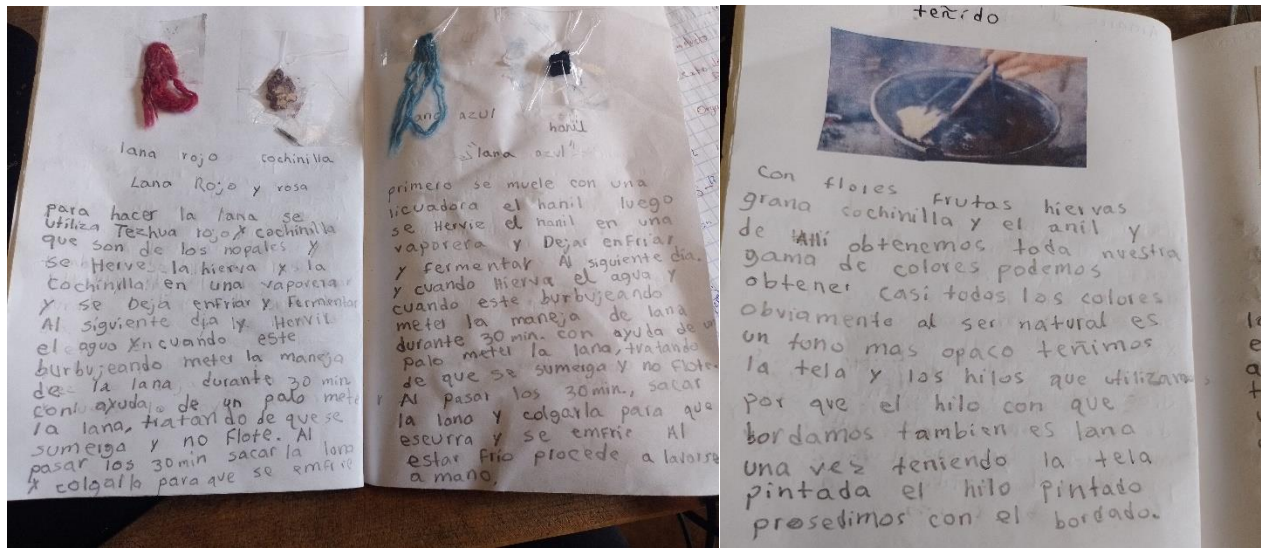 lana rojo cochinilla
Lana Rojo y rosa
para hacer la lana se
utiliza Tezhua rojo y cochinilla
que son de los nopales y
se Herve la hierva y la
cochinilla en una vaporera
y se Deja enfriar y Fermentar
Al siguiente dia y Hervir
el agua y cuando este
burbujeando meter la maneja
de la lana durante 30 min
con ayuda de un palo mete
la lana, tratando de que se
sumerga y no Flote. Al
pasar los 30 min sacar la lana
y colgarla para que se emfrie
lana azul
hanil
"lana azul"
primero se muele con una
licuadora el hanil luego
se Hervie el hanil en una
vaporera y Dejar enfriar
y fermentar Al siguiente dia.
y cuando Hierva el agua y
cuando este burbujeando
meter la maneja de lana
durante 30 min. con ayuda de un
palo meter la lana, tratando
de que se sumerga y no flote.
Al pasar los 30 min., sacar
la lana y colgarla para que
escurra y se emfrie Al
estar frio procede a lavarse
a mano.
teñido
con flores frutas hiervas
grana cochinilla y el anil y
de Alli obtenemos toda nuestra
gama de colores podemos
obtener casi todos los colores
obviamente al ser natural es
un tono mas opaco teñimos
la tela y los hilos que utilizamos
por que el hilo con que
bordamos tambien es lana
una vez teniendo la tela
pintada el hilo pintado
prosedimos con el bordado.